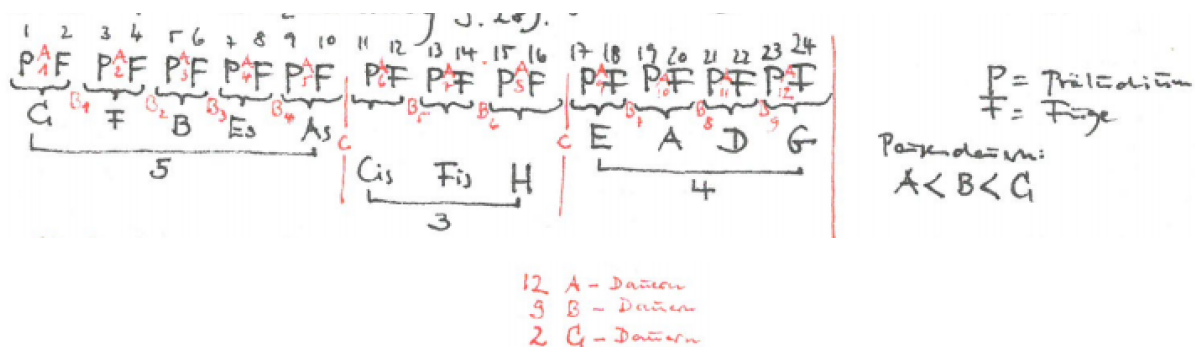 S. 28).
1 2 3 4 5 6 7 8 9 10 11 12 13 14 15 16 17 18 19 20 21 22 23 24
P A1 F P A2 F P A3 F P A4 F P A5 F P A6 F P A7 F P A8 F P A9 F P A10 F P A11 F P A12 F
B1 B2 B3 B4 B5 B6 B7 B8 B9
C F B Es As C C E A D G
Cis Fis H
5 3 4
P = Präludium
F = Fuge
Pausendauern:
A < B < C
12 A - Dauern
9 B - Dauern
2 C - Dauern